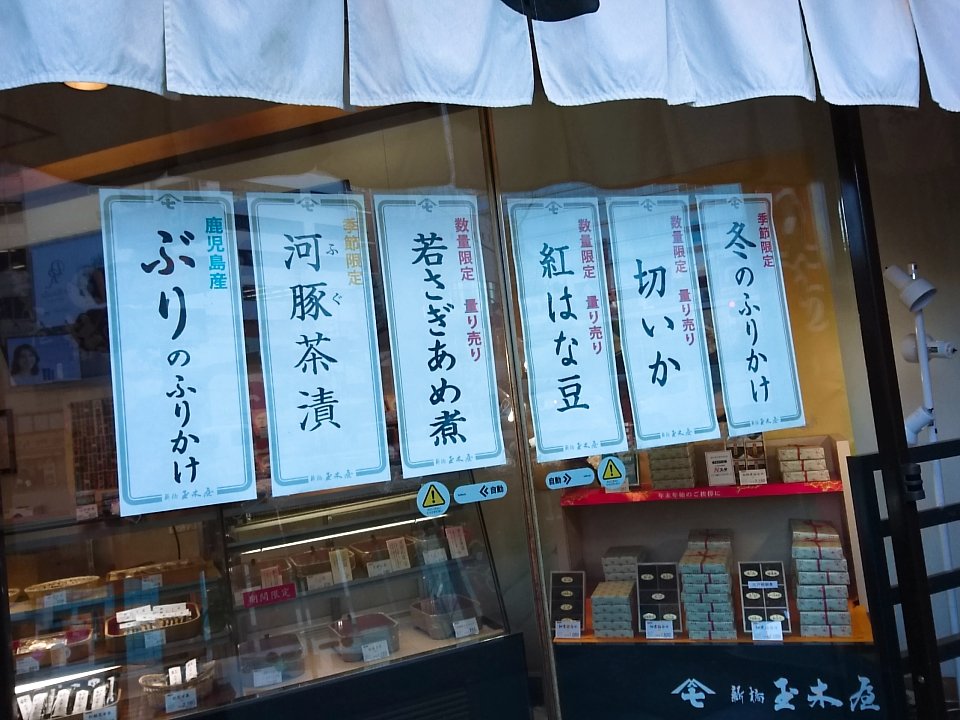 季節限定
冬のふりかけ
新橋 玉木屋
数量限定 量り売り
切いか
新橋 玉木屋
数量限定 量り売り
紅はな豆
新橋 玉木屋
数量限定 量り売り
若さぎあめ煮
新橋 玉木屋
季節限定
河豚茶漬
ふぐ
新橋 玉木屋
鹿児島産
ぶりのふりかけ
新橋 玉木屋
自動
自動
年末年始のご挨拶に
期間限定
新橋 玉木屋